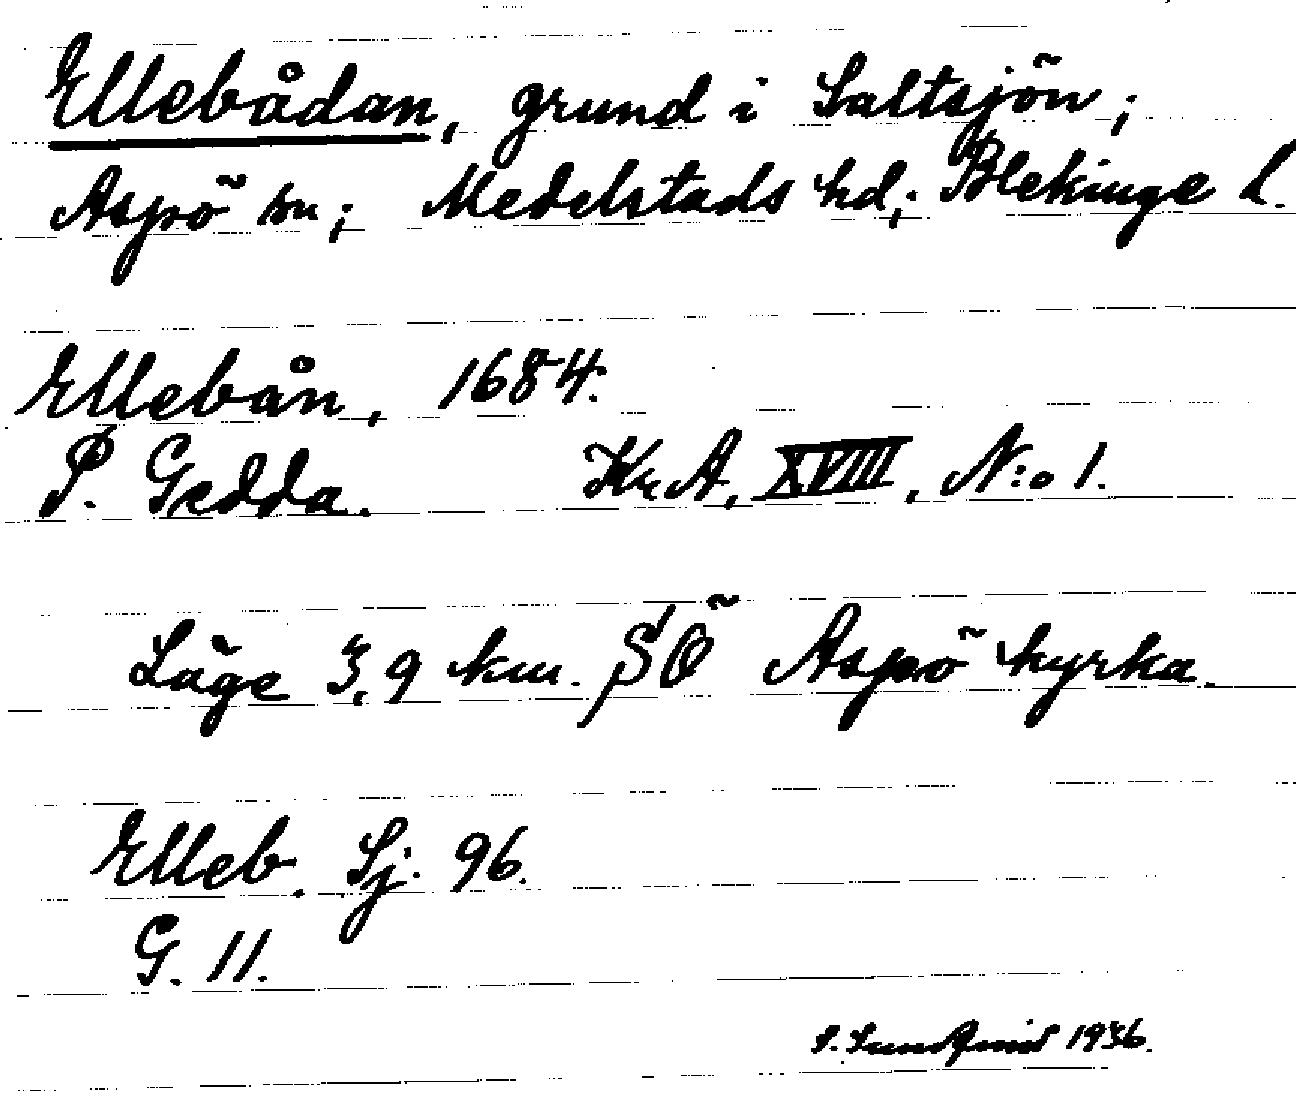 Ellebådan, grund i Saltsjön;
Aspö sn; Medelstads hd; Blekinge l.
Ellebån, 1684.
P. Gedda. Kr.A, XVIII, N:o 1.
Läge 3,9 km. SÖ Aspö kyrka.
Elleb. Sj. 96.
G. 11.
S. Lundqvist 1936.